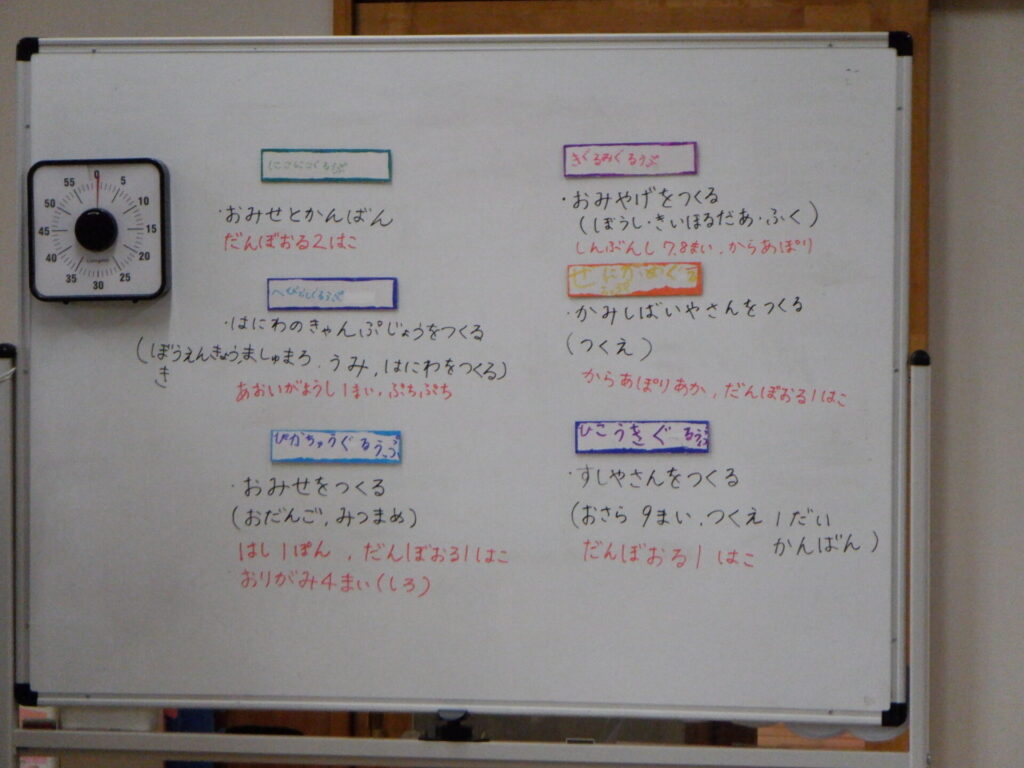 0
5
10
15
20
25
30
35
40
45
50
55
にこにこぐるうぷ
・おみせとかんばん
だんぼおる2はこ
・はにわのきゃんぷじょうをつくる
(ぼうえんきょう,ましゅまろ,うみ,はにわをつくる)
き
あおいがようし1まい,ぷちぷち
ぴかちゅうぐるうぷ
・おみせをつくる
(おだんご,みつまめ)
はし1ぽん,だんぼおる1はこ
おりがみ4まい(しろ)
きぐるみぐるうぷ
・おみやげをつくる
(ぼうし・きいほるだあ・ふく)
しんぶんし7,8まい,からあぽり
・かみしばいやさんをつくる
(つくえ)
からあぽりあか,だんぼおる1はこ
ひこうきぐるうぷ
・すしやさんをつくる
(おさら9まい,つくえ1だい
かんばん)
だんぼおる1はこ